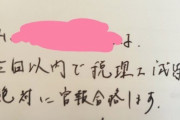 は、
回以内で税理士試
絶対に官報合格します。